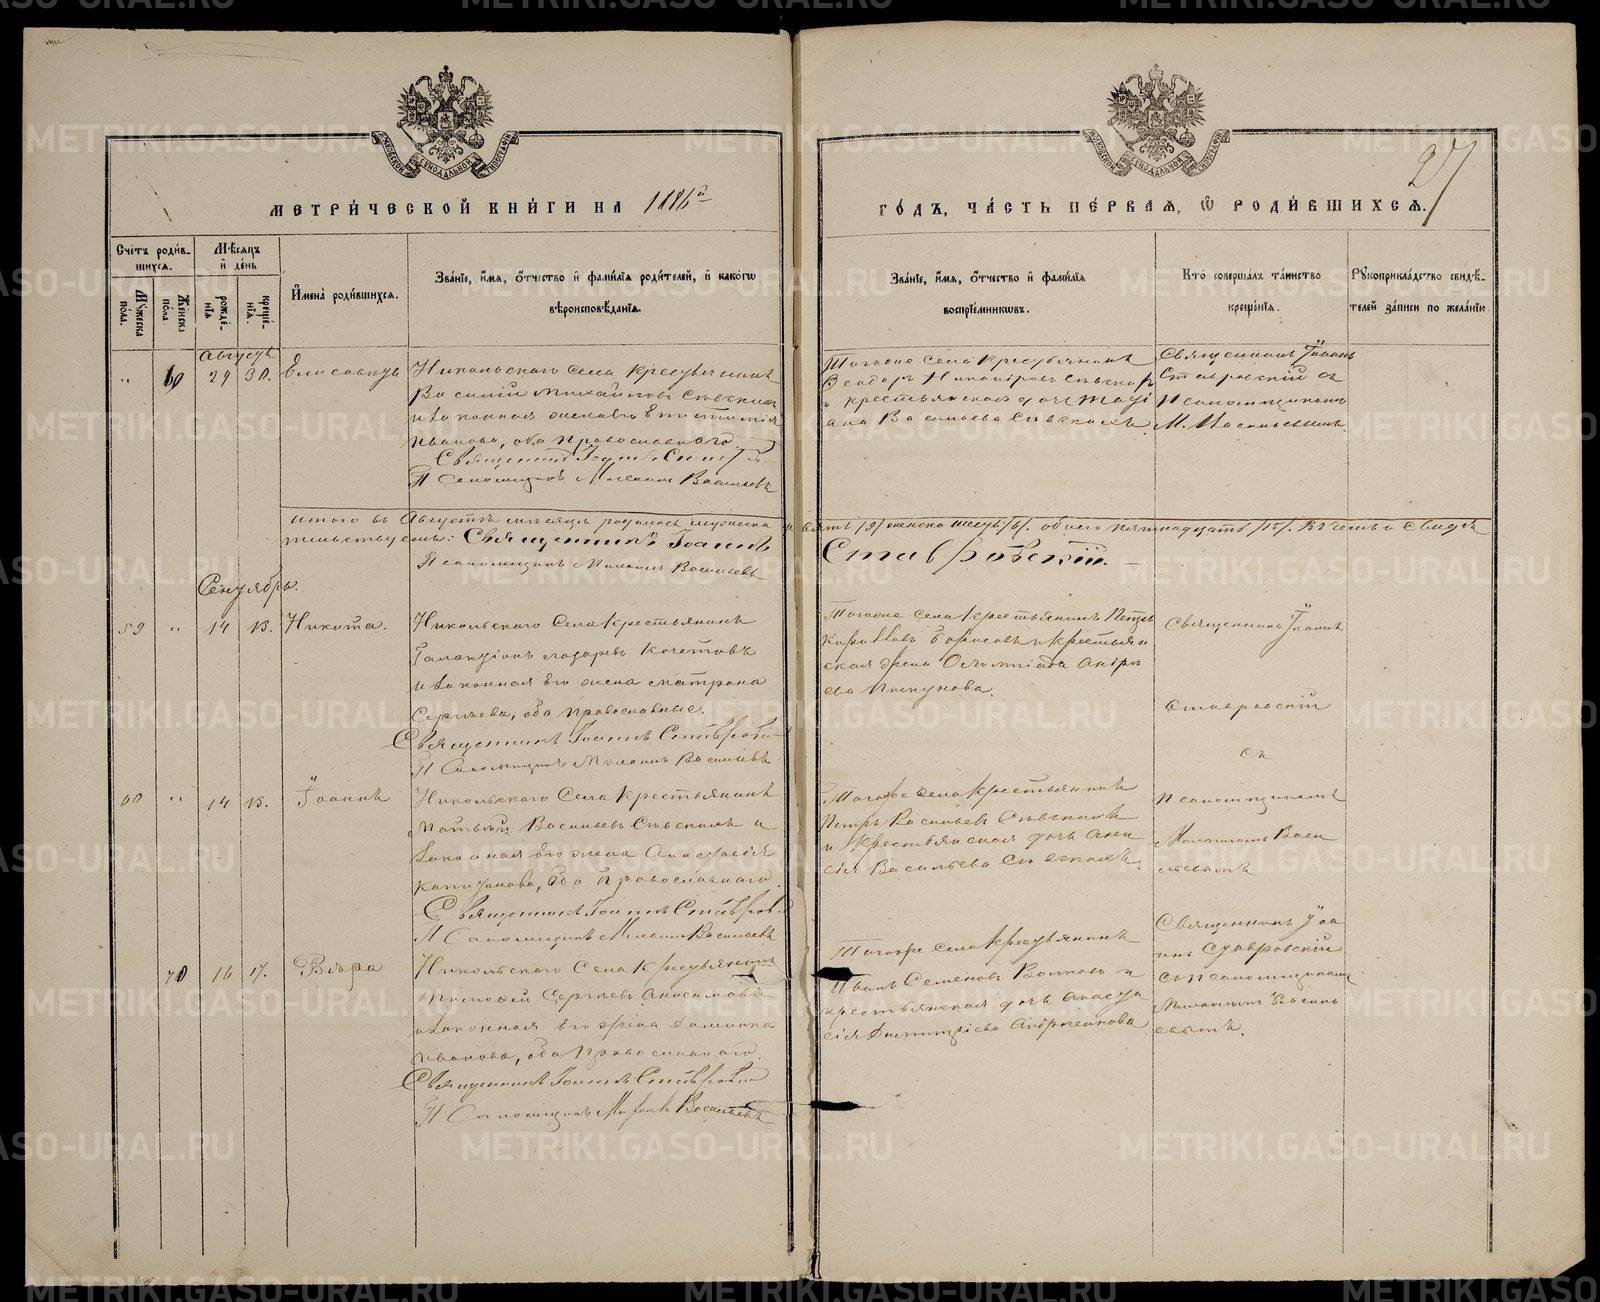 МЕТРИ́ЧЕСКОЙ КНИ́ГИ НА 1886й
ГО́ДЪ, ЧА́СТЬ ПЕ́РВАЯ, Ѿ РОДИ́ВШИХСЯ.
27
Сче́тъ роди́в-
шихся.
Мꙋ́жеска по́ла.
Же́нска по́ла.
Мѣ́сяцъ и҆ де́нь
рожде́нїя
креще́нїя.
И҆мена̀ роди́вшихся.
Зва́нїе, и҆́мя, ѻ҆́тчество и҆ фами́лїя роди́телей, и҆ како́гѡ
вѣроисповѣ́данїя.
Зва́нїе, и҆́мя, ѻ҆́тчество и҆ фами́лїя
воспрїе́мникѡвъ.
Кто̀ соверша́лъ та́инство
креще́нїя.
Рꙋкоприкла́дство свидѣ́-
телей за́писи по жела́нїю.
Августъ
" 60 29 30. Елисавета
Никольскаго села крестьянинъ
Василій Михайловъ
и законная жена его
Иванова, оба православнаго
Священникъ Іоаннъ
Псаломщикъ Михаилъ Васильевъ
Тогоже села крестьянинъ
Ѳеодоръ Никаноровъ
и крестьянская дочь
Васильева
Священникъ Іоаннъ
Ставровскій съ
Псаломщикомъ
М. Васильевымъ.
Итого въ Августѣ мѣсяцѣ родилось мужеска девять /9/ женска шесть /6/. обоего пятнадцать /15/. Въ чемъ и свидѣ
тельствуемъ: Священникъ Іоаннъ Ставровскій.
Псаломщикъ Михаилъ Васильевъ
Сентябрь.
59 " 14 15. Никита.
Никольскаго Села Крестьянинъ
Галактіонъ Лазаревъ Кочетовъ
и законная его жена Матрона
Сергѣева, оба православные.
Священникъ Іоаннъ Ставровскій
Псаломщикъ Михаилъ Васильевъ
Тогоже села крестьянинъ
Борисовъ и крестьян
ская жена Олимпіада Андре
ева
Священникъ Іоаннъ
Ставровскій
съ
60 " 14 15. Іоаннъ
Никольскаго Села Крестьянинъ
Матѳей Васильевъ и
законная его жена
оба Православнаго.
Священникъ Іоаннъ Ставров.
Псаломщикъ Михаилъ Васильевъ
Тогоже села крестьянинъ
Петръ Васильевъ
и крестьянская дочь
Васильева
Псаломщикомъ
Михаиломъ Васи
льевымъ
70 16 17. Вѣра
Никольскаго Села Крестьянинъ
Тимоѳей Сергѣевъ Анисимовъ
и законная его жена Домника
Иванова, оба Православнаго.
Священникъ Іоаннъ Ставровскій
Псаломщикъ Михаилъ Васильевъ
Тогоже села крестьянинъ
Иванъ Семеновъ Волковъ и
крестьянская дочь Анаста
сія Димитріева
Священникъ Іоа
ннъ Ставровскій
съ Псаломщикомъ
Михаиломъ Василь
евымъ.
METRIKI.GASO-URAL.RU